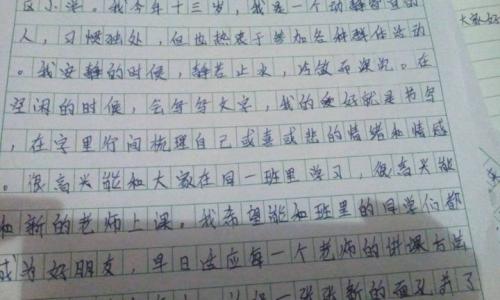 区小学。我今年十三岁,我是一个动静皆宜的
人,习惯独处,但也热衷于参加各种群体活动
。我安静的时候,静若止水,冷敛而深沉。在
空闲的时候,会写写文字,我的爱好就是书写
,在字里行间梳理自己或喜或悲的情绪和情感
。很高兴能和大家在同一班里学习,很高兴能
和新的老师上课。我希望能和班里的同学们都
成为好朋友,早日适应每一个老师的讲课方法
一张张新的面孔
大家好